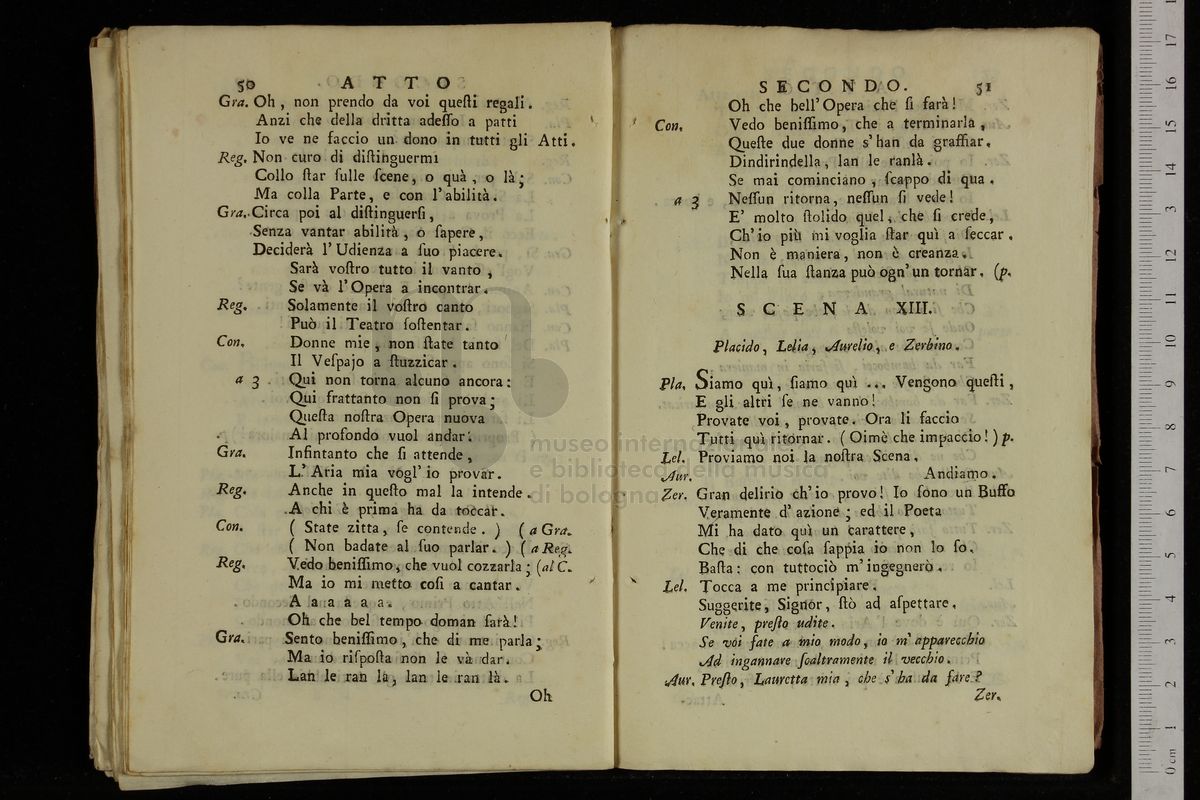 50 ATTO
Gra. Oh, non prendo da voi queſti regali.
Anzi che della dritta adeſſo a patti
Io ve ne faccio un dono in tutti gli Atti.
Reg. Non curo di diſtinguermi
Collo ſtar ſulle ſcene, o quà, o là;
Ma colla Parte, e con l'abilità.
Gra. Circa poi al diſtinguerſi,
Senza vantar abilità, o ſapere,
Deciderà l'Udienza a ſuo piacere.
Sarà voſtro tutto il vanto,
Se và l'Opera a incontrar.
Reg. Solamente il voſtro canto
Può il Teatro ſoſtentar.
Con. Donne mie, non ſtate tanto
Il Veſpajo a ſtuzzicar.
a 3 Qui non torna alcuno ancora:
Qui frattanto non ſi prova;
Queſta noſtra Opera nuova
Al profondo vuol andar.
Gra. Infintanto che ſi attende,
L'Aria mia vogl'io provar.
Reg. Anche in queſto mal la intende.
A chi è prima ha da toccar.
Con. ( State zitta, ſe contende. ) ( a Gra.
( Non badate al ſuo parlar. ) ( a Reg.
Reg. Vedo beniſſimo, che vuol cozzarla; (al C.
Ma io mi metto coſi a cantar.
A a a a a a.
Oh che bel tempo doman farà!
Gra. Sento beniſſimo, che di me parla;
Ma io riſpoſta non le và dar.
Lan le ran là, lan le ran là.
Oh
SECONDO. 51
Oh che bell'Opera che ſi farà!
Con. Vedo beniſſimo, che a terminarla,
Queſte due donne s'han da graffiar.
Dindirindella, lan le ranlà.
Se mai cominciano, ſcappo di qua.
a 3 Neſſun ritorna, neſſun ſi vede!
E' molto ſtolido quel, che ſi crede,
Ch'io più mi voglia ſtar quì a ſeccar.
Non è maniera, non è creanza.
Nella ſua ſtanza può ogn'un tornar. (p.
SCENA XIII.
Placido, Lelia, Aurelio, e Zerbino.
Pla. Siamo quì, ſiamo quì ... Vengono queſti,
E gli altri ſe ne vanno!
Provate voi, provate. Ora li faccio
Tutti quì ritornar. ( Oimè che impaccio! ) p.
Lel. Proviamo noi la noſtra Scena.
Aur. Andiamo.
Zer. Gran delirio ch'io provo! Io ſono un Buffo
Veramente d'azione; ed il Poeta
Mi ha dato quì un carattere,
Che di che coſa ſappia io non lo ſo.
Baſta: con tuttociò m'ingegnerò.
Lel. Tocca a me principiare.
Suggerite, Signor, ſtò ad aſpettare.
Venite, preſto udite.
Se voi fate a mio modo, io m'apparecchio
Ad ingannare ſcaltramente il vecchio.
Aur. Preſto, Lauretta mia, che s'ha da fare?
Zer.
museo internazionale
e biblioteca della musica
di bologna
0 cm 1 2 3 4 5 6 7 8 9 10 11 12 13 14 15 16 17